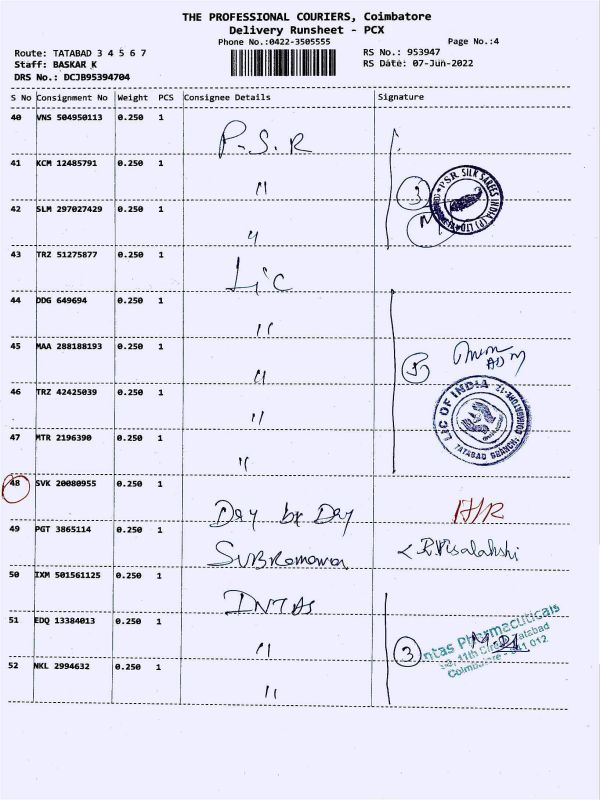 THE PROFESSIONAL COURIERS, Coimbatore
Delivery Runsheet - PCX
Phone No.:0422-3505555
Page No.:4
Route: TATABAD 3 4 5 6 7
RS No.: 953947
Staff: BASKAR K
RS Date: 07-Jun-2022
DRS No.: DCJB95394704
S No Consignment No Weight PCS Consignee Details Signature
40 VNS 504950113 0.250 1 P.S.R
41 KCM 12485791 0.250 1 "
3
P.S.R. SILK SAREES INDIA (P) LTD
42 SLM 297027429 0.250 1 "
43 TRZ 51275877 0.250 1 Lic
44 DDG 649694 0.250 1 "
45 MAA 288188193 0.250 1 "
5
46 TRZ 42425039 0.250 1 "
LIC OF INDIA
TATABAD BRANCH, COIMBATORE-12
47 MTR 2196390 0.250 1 "
48 SVK 20080955 0.250 1 Day by Day
49 PGT 3865114 0.250 1 R Visalakshi
50 IXM 501561125 0.250 1 INTAS
51 EDQ 13384013 0.250 1 "
3
ntas Pharmaceuticals
11th Cross Tatabad
Coimbatore - 641 012
52 NKL 2994632 0.250 1 "